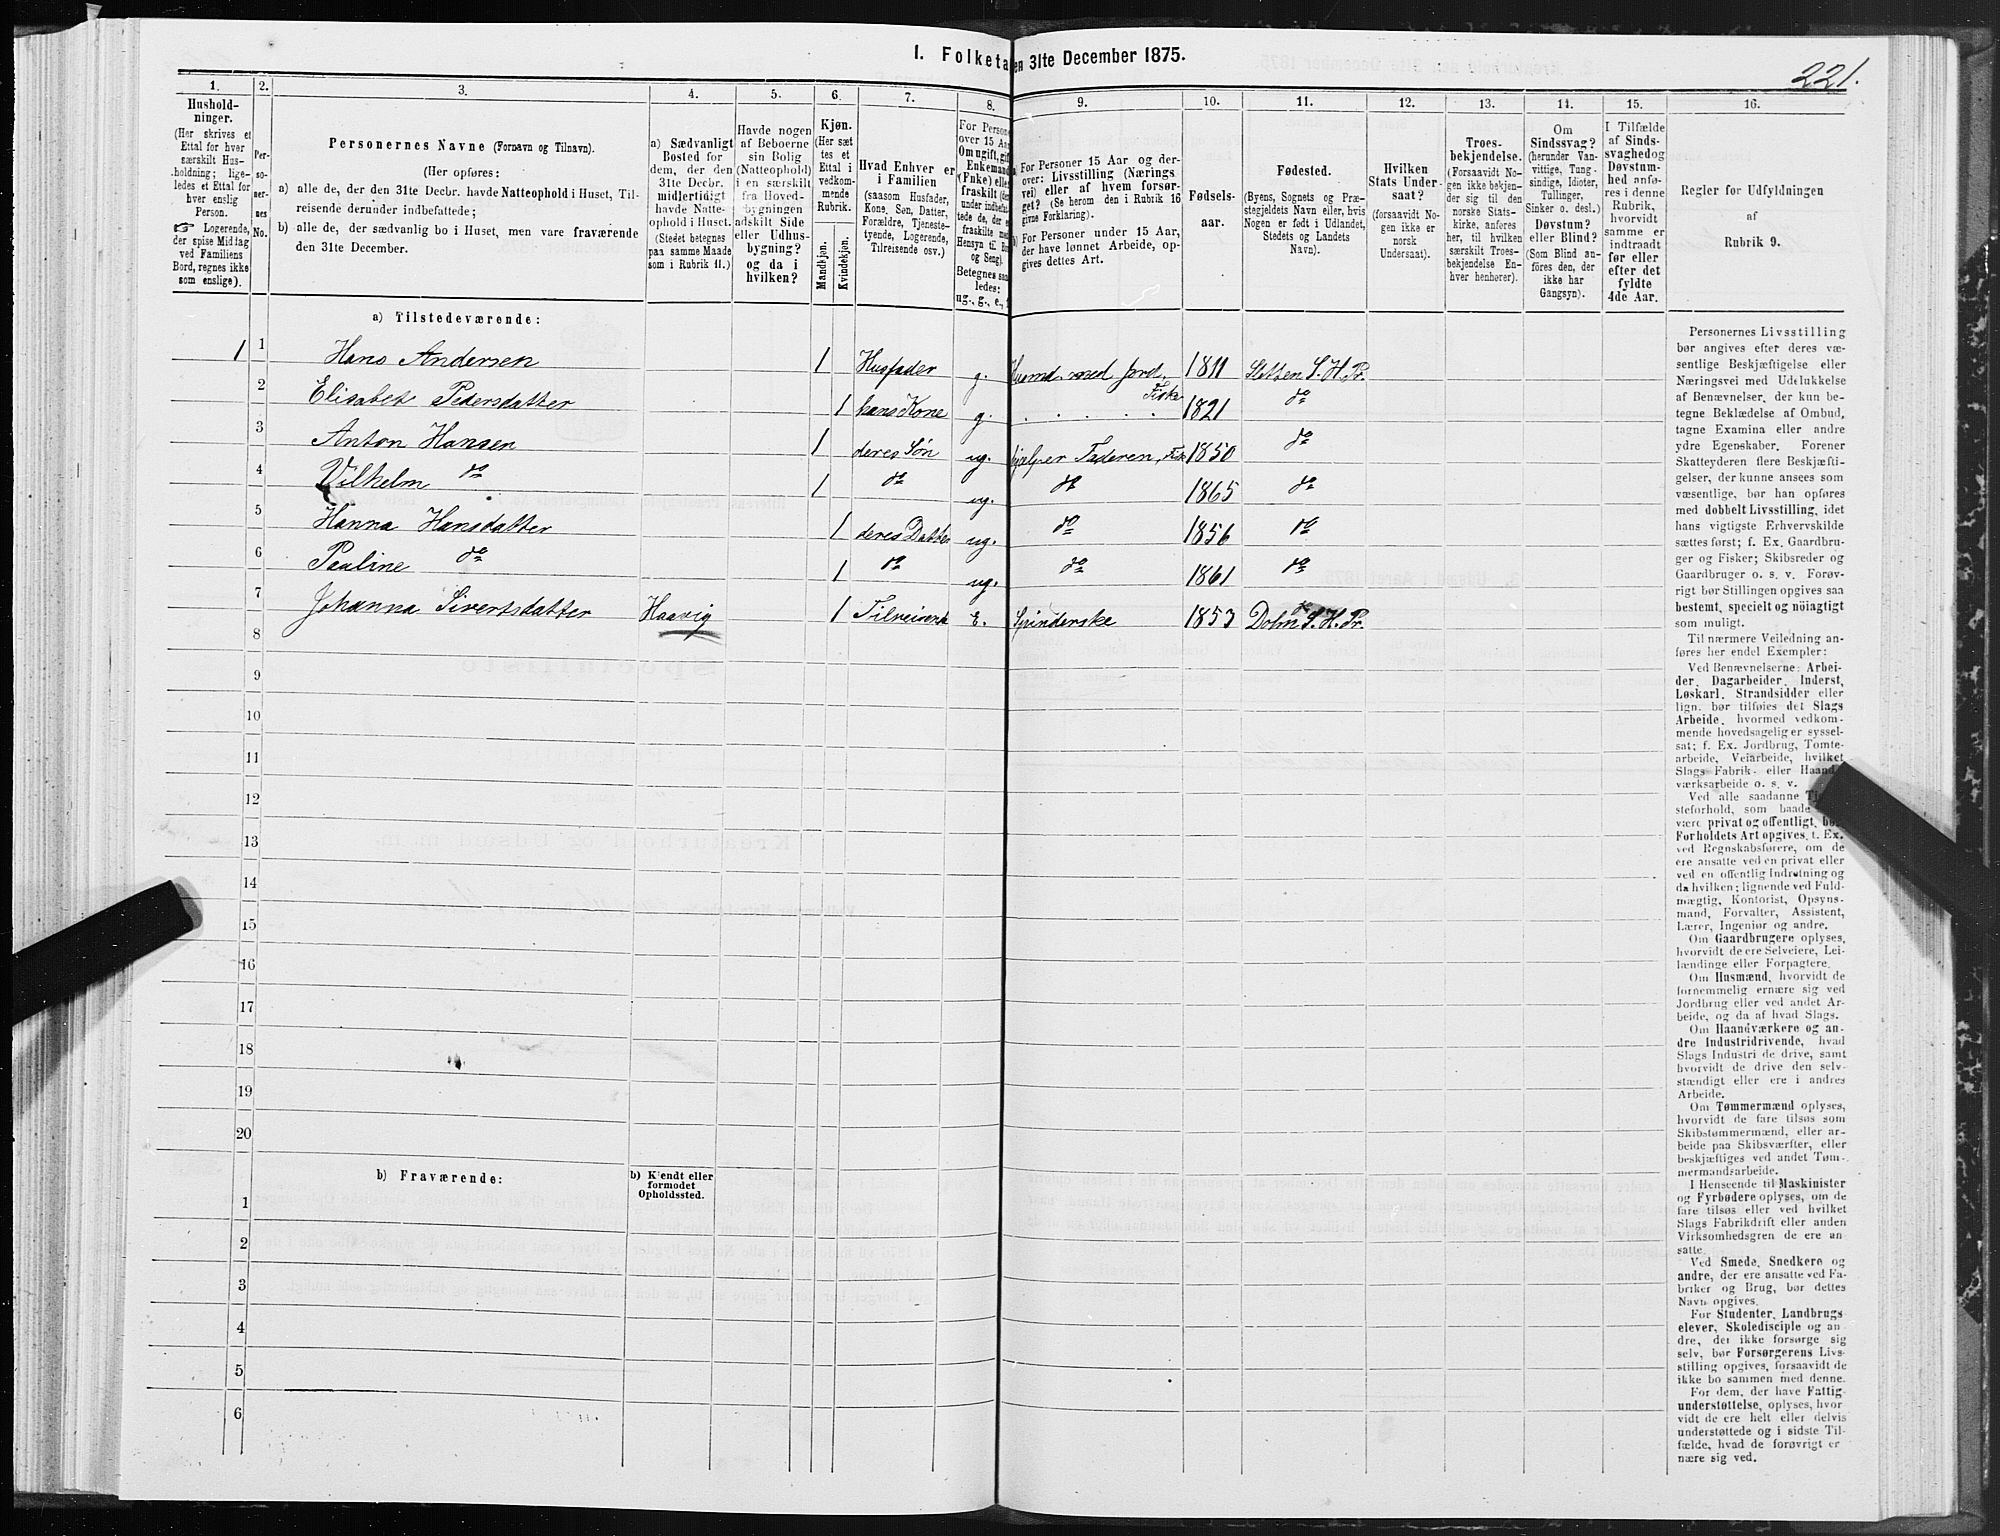 1. Folketa en 31te December 1875.
221.
1.
Hushold-
ninger.
(Her skrives et
Ettal for hver
særskilt Hus-
holdning; lige-
ledes et Ettal for
hver enslig
Person.
Logerende,
der spise Middag
ved Familiens
Bord, regnes ikke
som enslige).
2.
Per-
so-
ner-
nes
No.
3.
Personernes Navne (Fornavn og Tilnavn).
(Her opføres:
a) alle de, der den 31te Decbr. havde Natteophold i Huset, Til-
reisende derunder indbefattede;
b) alle de, der sædvanlig bo i Huset, men vare fraværende
den 31te December.
4.
a) Sædvanligt
Bosted for
dem, der den
31te Decbr.
midlertidigt
havde Natte-
ophold i Huset.
(Stedet betegnes
paa samme Maade
som i Rubrik 11.)
5.
Havde nogen
af Beboerne
sin Bolig
(Natteophold)
i en særskilt
fra Hoved-
bygningen
adskilt Side
eller Udhus-
bygning?
og da i
hvilken?
6.
Kjøn.
(Her sæt
tes et
Ettal i
vedkom-
mende
Rubrik.
Mandkjøn.
Kvindekjøn.
7.
Hvad Enhver er
i Familien
(saasom Husfader,
Kone, Søn, Datter,
Forældre, Tjeneste-
tyende, Logerende,
Tilreisende osv.)
8.
For Persone
over 15 Aar
Om ugift, gif
Enkemand
(Enke) eller
fraskilt (der
under indbefat
tede de, der e
fraskilte me
Hensyn til Bo
og Seng).
Betegnes saa
ledes:
ug., g., e., f
9.
For Personer 15 Aar og der-
over: Livsstilling (Nærings
vei) eller af hvem forsør-
get? (Se herom den i Rubrik 16
givne Forklaring).
For Personer under 15 Aar,
der have lønnet Arbeide, op-
gives dettes Art.
10.
Fødsels-
aar.
11.
Fødested.
(Byens, Sognets og Præ-
stegjeldets Navn eller, hvis
Nogen er født i Udlandet,
Stedets og Landets
Navn).
12.
Hvilken
Stats Under-
saat?
(forsaavidt No-
gen ikke er
norsk
Undersaat).
13.
Troes-
bekjendelse.
(Forsaavidt No-
gen ikke bekjen-
der sig til den
norske Stats-
kirke, anføres
her, til hvilken
særskilt Troes-
bekjendelse En-
hver henhører).
14.
Om
Sindssvag?
(herunder Van-
vittige, Tung-
sindige, Idioter,
Tullinger,
Sinker o. desl.)
Døvstum?
eller Blind?
(Som Blind an-
føres den, der
ikke har
Gangsyn).
15.
I Tilfælde
af Sinds-
svaghed og
Døvstum-
hed anfø-
res i denne
Rubrik,
hvorvidt
samme er
indtraadt
før eller
efter det
fyldte
4de Aar.
16.
Regler for Udfyldningen
af
Rubrik 9.
a) Tilstedeværende:
1 1 Hans Andersen 1 Husfader g. Husmd. med Jord. Fiske 1811 Sletten S. H. Pr.
2 Elisabet Pedersdatter 1 hans Kone g. . . . . . 1821 do
3 Anton Hansen 1 deres Søn ug. hjælper Faderen, Fisk 1850 do
4 Vilhelm do 1 do ug. do 1865 do
5 Hanna Hansdatter 1 deres Datter ug. do 1856 do
6 Pauline do 1 do ug. do 1861 do
7 Johanna Sivertsdatter Haavig 1 Tilreisende E. Spinderske 1853 S. H. Pr.
8
9
10
11
12
13
14
15
16
17
18
19
20
b) Fraværende:
b) Kjendt eller
formodet
Opholdssted.
1
2
3
4
5
6
Personernes Livsstilling
bør angives efter deres væ-
sentlige Beskjæftigelse eller
Næringsvei med Udelukkelse
af Benævnelser, der kun be-
tegne Beklædelse af Ombud,
tagne Examina eller andre
ydre Egenskaber. Forener
Skatteyderen flere Beskjæfti-
gelser, der kunne ansees som
væsentlige, bør han opføres
med dobbelt Livsstilling, idet
hans vigtigste Erhvervskilde
sættes først; f. Ex. Gaardbru-
ger og Fisker; Skibsreder og
Gaardbruger o. s. v. Forøv-
rigt bør Stillingen opgives saa
bestemt, specielt og nöiagtigt
som muligt.
Til nærmere Veiledning an-
føres her endel Exempler:
Ved Benævnelserne: Arbei-
der, Dagarbeider, Inderst,
Løskarl, Strandsidder eller
lign. bør tilføies det Slags
Arbeide, hvormed vedkom-
mende hovedsagelig er syssel-
sat; f. Ex. Jordbrug, Tomte-
arbeide, Veiarbeide, hvilket
Slags Fabrik- eller Haand-
værksarbeide o. s. v.
Ved alle saadanne Tj
steforhold, som baade
være privat og offentligt, bør
Forholdets Art opgives, t. Ex.
ved Regnskabsførere, om de
ere ansatte ved en privat eller
ved en offentlig Indretning og
da hvilken; lignende ved Fuld-
mægtig, Kontorist, Opsyns-
mand, Forvalter, Assistent,
Lærer, Ingeniør og andre.
Om Gaardbrugere oplyses,
hvorvidt de ere Selveiere, Lei-
lændinge eller Forpagtere.
Om Husmænd, hvorvidt de
fornemmelig ernære sig ved
Jordbrug eller ved andet Ar-
beide, og da af hvad Slags.
Om Haandværkere og an-
dre Industridrivende, hvad
Slags Industri de drive, samt
hvorvidt de drive den selv-
stændigt eller ere i andres
Arbeide.
Om Tømmermænd oplyses,
hvorvidt de fare tilsøs som
Skibstømmermænd, eller ar-
beide paa Skibsværfter, eller
beskjæftiges ved andet Tøm-
mermandsarbeide.
I Henseende til Maskinister
og Fyrbødere oplyses, om de
fare tilsøs eller ved hvilket
Slags Fabrikdrift eller anden
Virksomhedsgren de ere an-
satte.
Ved Smede, Snedkere og
andre, der ere ansatte ved Fa-
briker og Brug, bør dettes
Navn opgives.
For Studenter, Landbrugs
elever, Skoledisciple og an-
dre, der ikke forsørge sig
selv, bør Forsørgerens Livs-
stilling opgives, forsaavidt de
ikke bo sammen med denne.
For dem, der have Fattig-
understøttelse, oplyses, hvor
vidt de ere helt eller delvis
understøttede og i sidste Til-
fælde, hvad de forøvrigt er
nære sig ved.